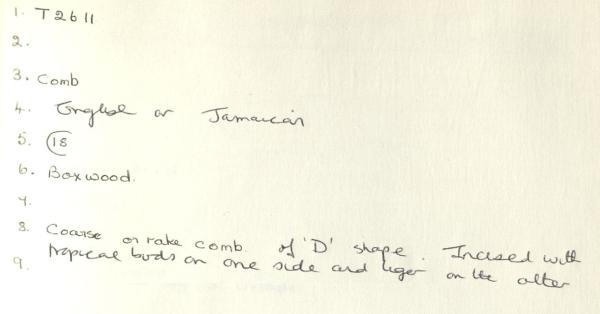 1. T2611
2.
3. Comb
4. English or Jamaican
5. 18
6. Boxwood.
7.
8. Coarse or rake comb of 'D' shape. Incised with
9. tropical birds on one side and tiger on the other